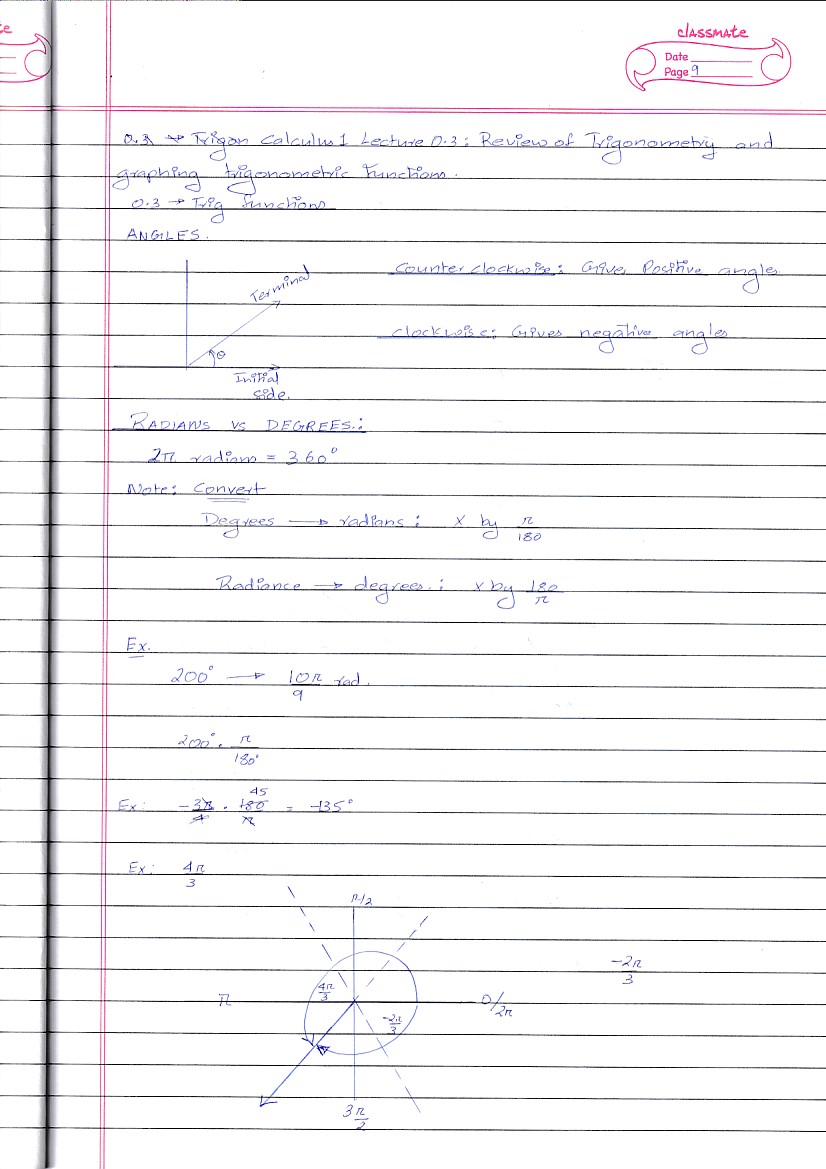 te
classmate
Date
Page 9
0.3 → Trigon Calculus 1 Lecture 0.3: Review of Trigonometry and
graphing trigonometric functions.
0.3 → Trig functions
ANGLES.
Terminal
θ
Initial
side.
Counter clockwise: Gives Positive angles
clockwise: Gives negative angles
RADIANS VS DEGREES:
2π radians = 360°
Note: Convert
Degrees → radians: × by π/180
Radiance → degrees: × by 180/π
Ex.
200° → 10π/9 rad.
200° · π/180°
45
Ex: -3π/4 · 180/π = -135°
Ex: 4π/3
π/2
-2π/3
4π/3
π
0/2π
-2π/3
3π/2